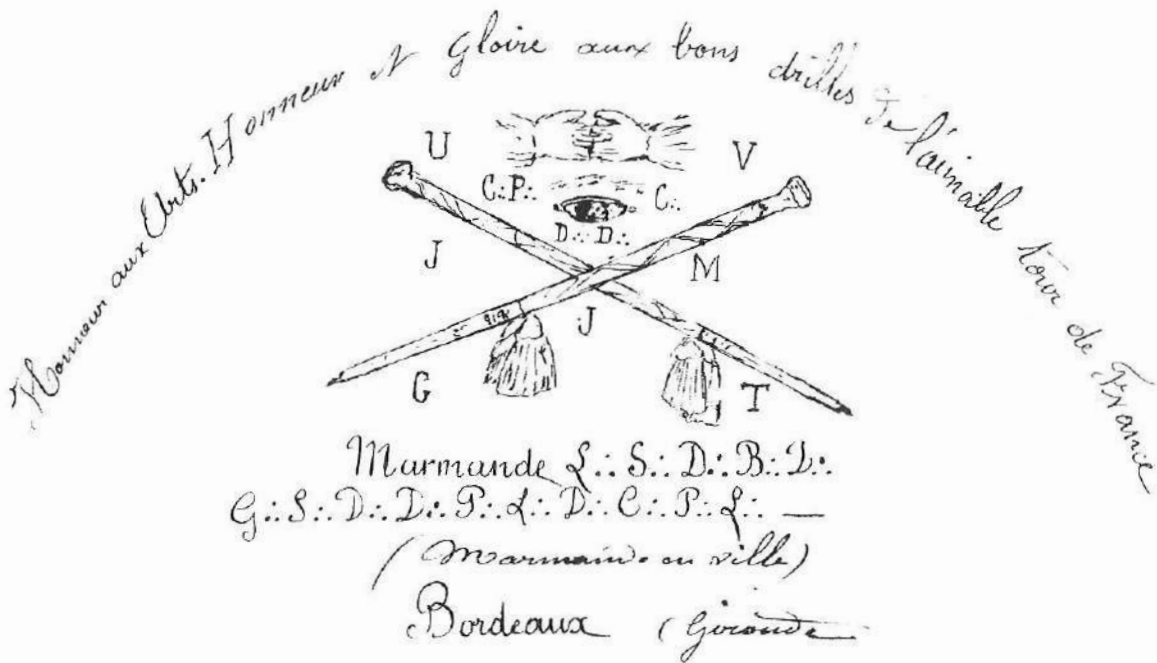 Honneur aux Arts. Honneur et Gloire aux bons drilles de l'aimable tour de France
U V
C∴P∴ C∴
D∴ D∴
J M
J
G T
Marmande L∴ S∴ D∴ B∴ L∴
G∴ S∴ D∴ D∴ P∴ L∴ D∴ C∴ P∴ L∴ —
en ville)
Bordeaux (Gironde